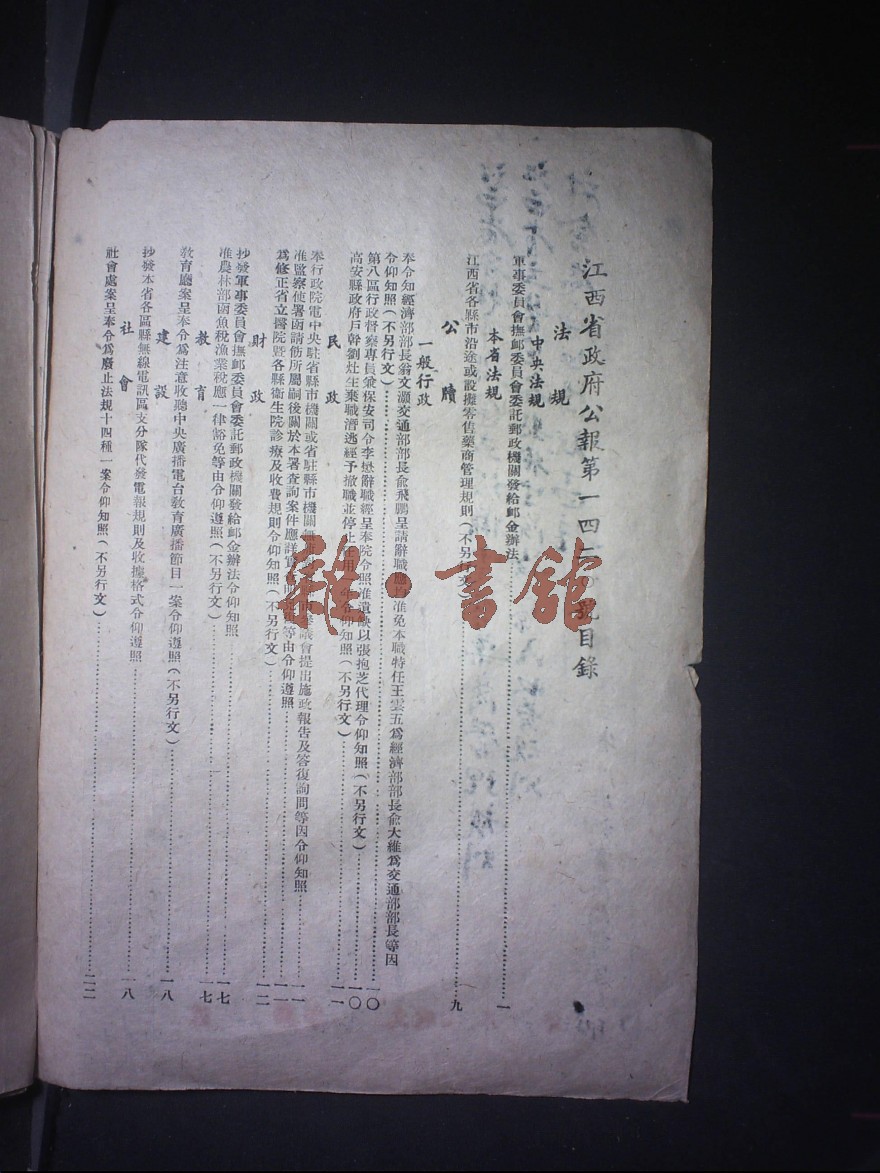 江西省政府公報第一四 號目錄
法規
中央法規
軍事委員會撫邮委員會委託郵政機關發給邮金辦法……一
本省法規
江西省各縣市沿途或設攤零售藥商管理規則(不另行文)……九
公牘
一般行政
奉令知經濟部部長翁文灝交通部部長俞飛鵬呈請辭職應 准免本職特任王雲五為經濟部部長俞大維為交通部部長等因
令仰知照(不另行文)……一〇
第八區行政督察專員兼保安司令李懋辭職經呈奉院令照准遺缺以張抱芝代理令仰知照(不另行文)……一〇
高安縣政府戶幹劉灶生棄職潛逃經予撤職並停止任用 年令仰知照(不另行文)……一一
民政
奉行政院電中央駐省縣市機關或省駐縣市機關無 議會提出施政報告及答復詢問等因令仰知照……一一
准監察使署函請飭所屬嗣後關於本署查詢案件應詳 等由令仰遵照……一一
為修正省立醫院暨各縣衛生院診療及收費規則令仰知照(不另行文)……一二
財政
抄發軍事委員會撫邮委員會委託郵政機關發給邮金辦法令仰知照……一七
准農林部函魚稅漁業稅應一律豁免等由令仰遵照(不另行文)……一七
教育
教育廳案呈奉令為注意收聽中央廣播電台教育廣播節目一案令仰遵照(不另行文)……一八
建設
抄發本省各區縣無線電訊區支分隊代發電報規則及收據格式令仰遵照……一八
社會
社會處案呈奉令為廢止法規十四種一案令仰知照(不另行文)……二二
雜·書館